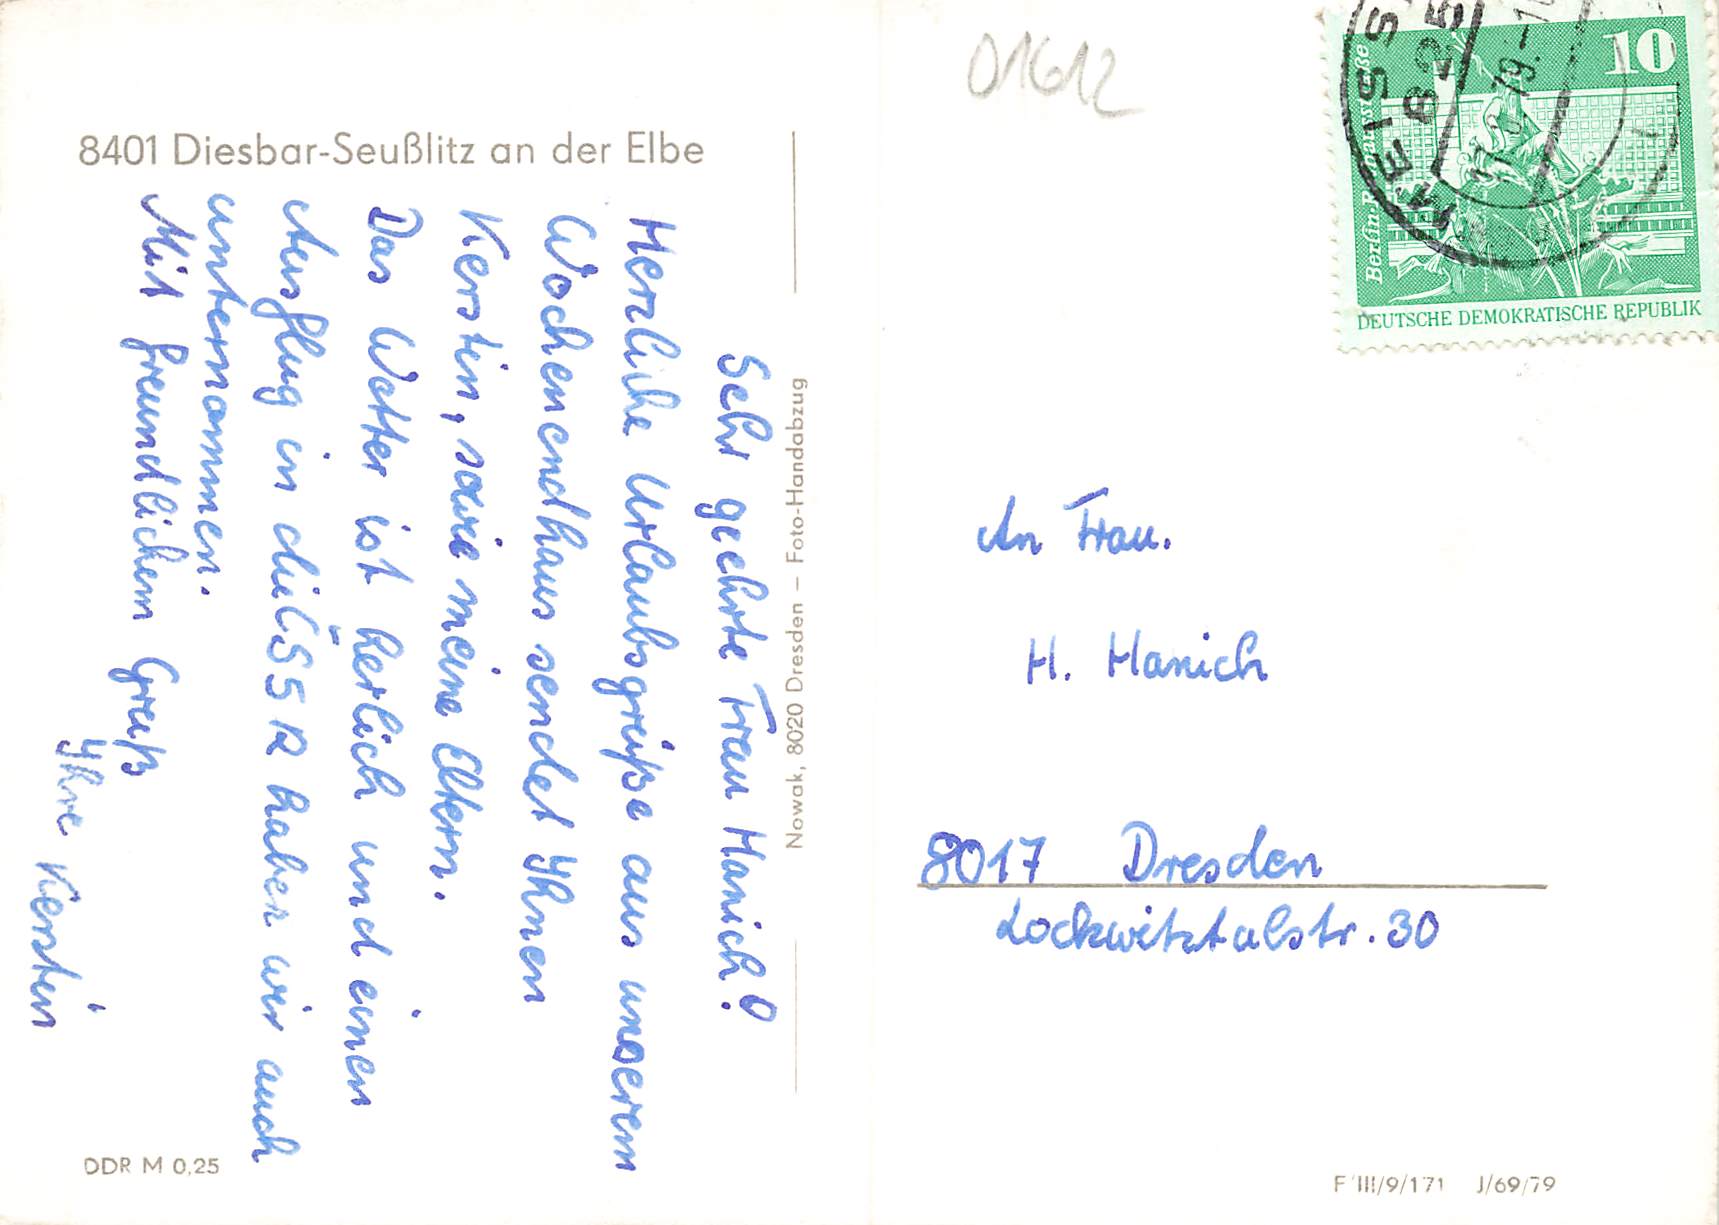 8401 Diesbar-Seußlitz an der Elbe
Sehr geehrte Frau Hanich!
Herzliche Urlaubsgrüße aus unserem
Wochenendhaus sendet Ihnen
Kerstin, sowie meine Eltern.
Das Wetter ist herlich und einen
Ausflug in die ČSSR haben wir auch
unternommen.
Mit freundlichem Gruß
Ihre Kerstin
Nowak, 8020 Dresden – Foto-Handabzug
DDR M 0,25
01612
10
DEUTSCHE DEMOKRATISCHE REPUBLIK
MEISS
An Frau.
H. Hanich
8017 Dresden
Lockwitztalstr. 30
F III/9/171 J/69/79